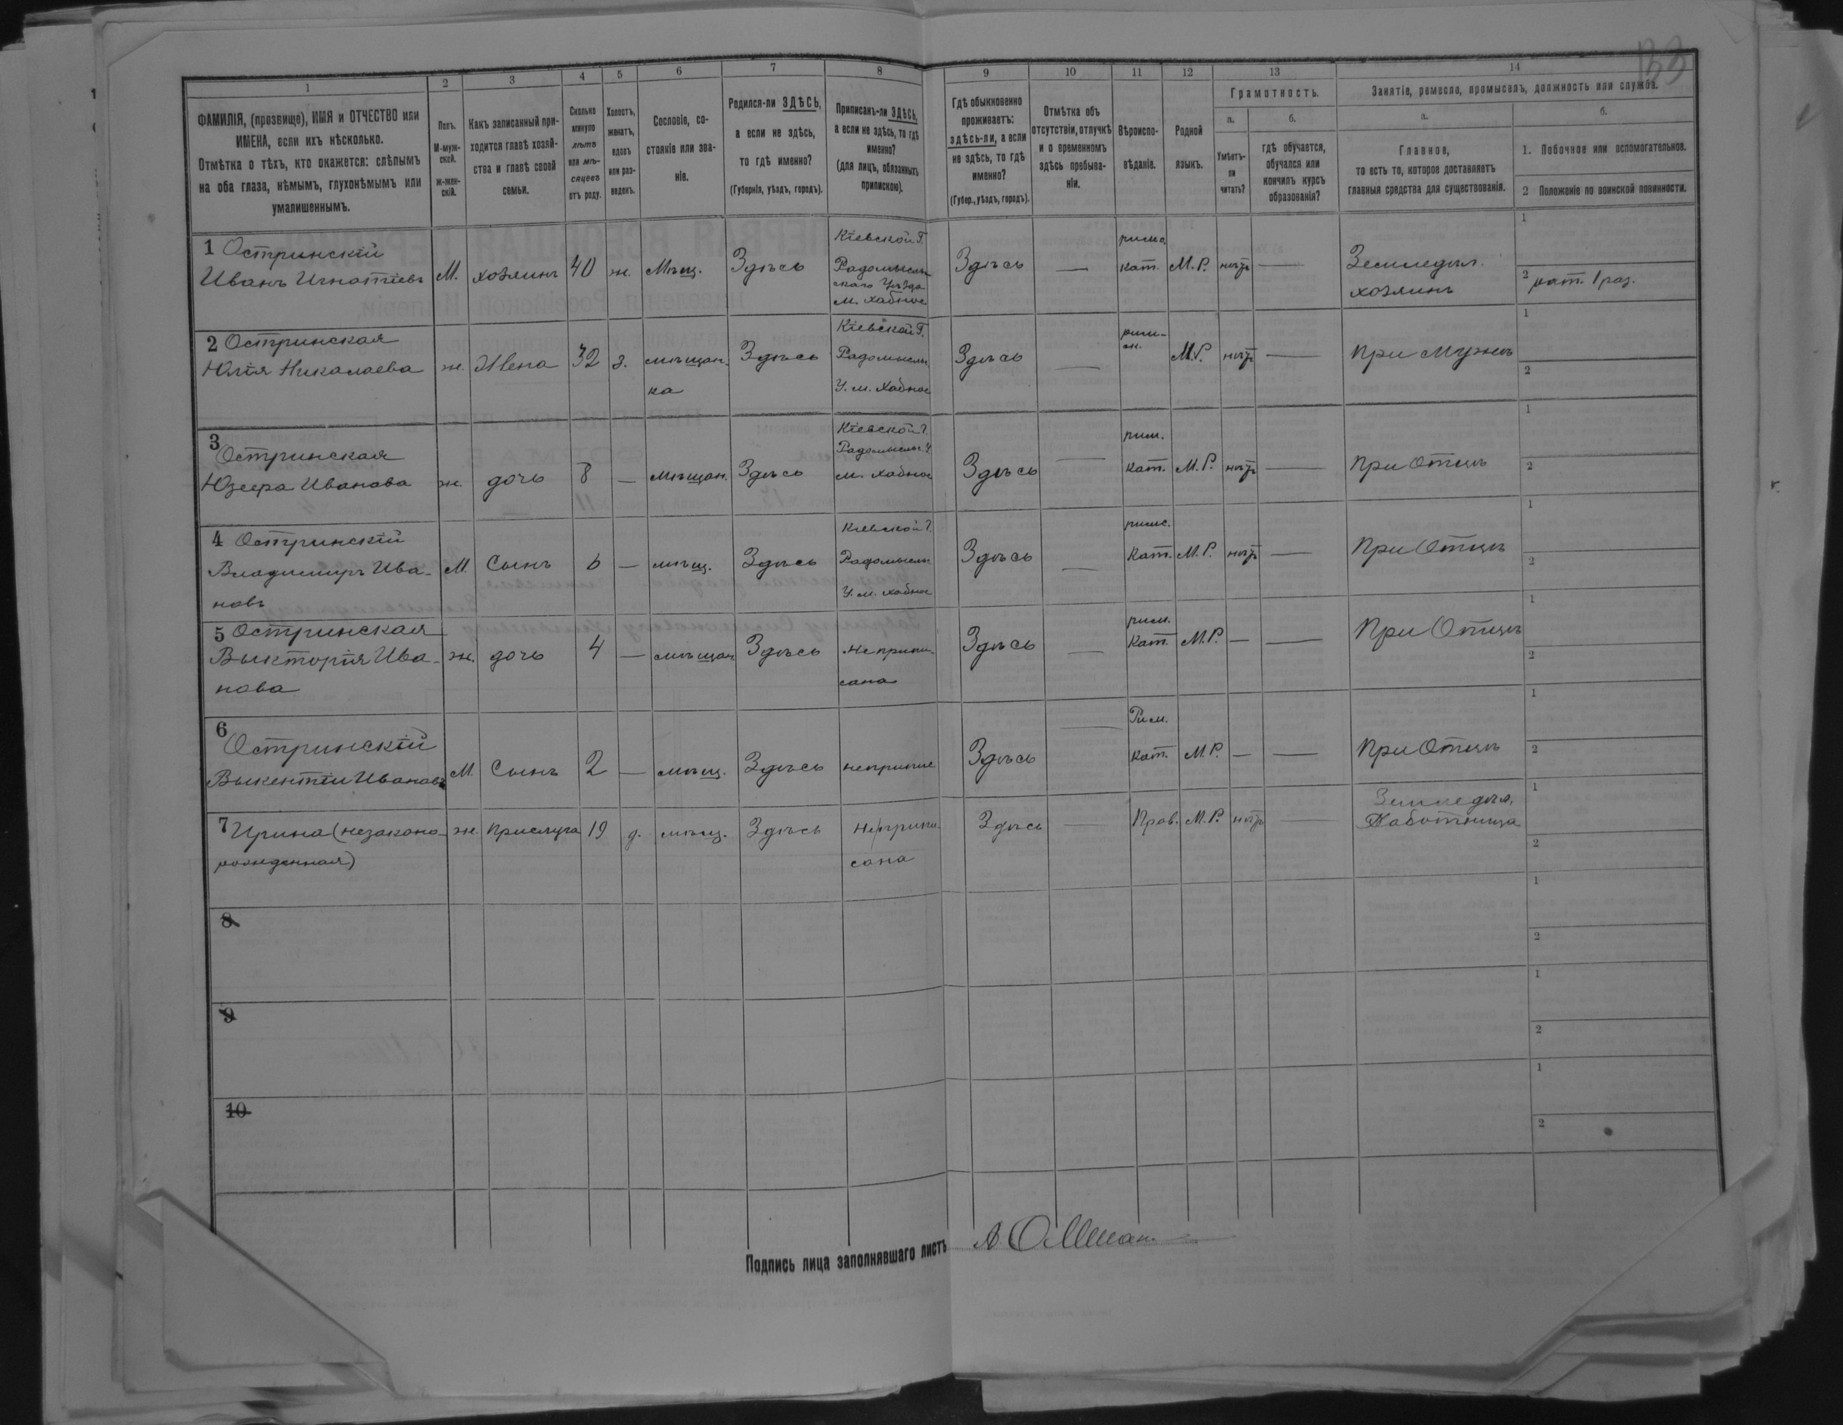 133
1
2
3
4
5
6
7
8
9
10
11
12
13
14
ФАМИЛІЯ, (прозвище), ИМЯ и ОТЧЕСТВО или
ИМЕНА, если ихъ нѣсколько.
Отмѣтка о тѣхъ, кто окажется: слѣпымъ
на оба глаза, нѣмымъ, глухонѣмымъ или
умалишеннымъ.
Полъ.
М-мужской.
Ж-женскій.
Какъ записанный при-
ходится главѣ хозяй-
ства и главѣ своей
семьи.
Сколько
минуло
лѣтъ
или мѣ-
сяцевъ
отъ роду.
Холостъ,
женатъ,
вдовъ
или раз-
веденъ.
Сословіе, со-
стояніе или зва-
ніе.
Родился-ли ЗДѢСЬ,
а если не здѣсь,
то гдѣ именно?
(Губернія, уѣздъ, городъ).
Приписанъ-ли ЗДѢСЬ,
а если не здѣсь, то гдѣ
именно?
(для лицъ, обязанныхъ
припискою).
Гдѣ обыкновенно
проживаетъ:
здѣсь-ли, а если
не здѣсь, то гдѣ
именно?
(Губер., уѣздъ, городъ).
Отмѣтка объ
отсутствіи, отлучкѣ
и о временномъ
здѣсь пребыва-
ніи.
Вѣроиспо-
вѣданіе.
Родной
языкъ.
Грамотность.
а.
Умѣетъ-
ли
читать?
б.
гдѣ обучается,
обучался или
кончилъ курсъ
образованія?
Занятіе, ремесло, промыселъ, должность или служба.
а.
Главное,
то есть то, которое доставляетъ
главныя средства для существованія.
б.
1. Побочное или вспомогательное.
2 Положеніе по воинской повинности.
1 Остринскій
Иванъ Игнатіевъ
М.
хозяинъ
40
ж.
Мѣщ.
Здѣсь
Кіевской Г.
Радомысль-
скаго Уѣзда
м. Хабное
Здѣсь
—
римс.
кат.
М.Р.
нѣтъ
—
Земледѣл.
хозяинъ
1
2 рат. 1 раз.
2 Остринская
Юлія Николаева
ж.
Жена
32
з.
мѣщан-
ка
Здѣсь
Кіевской Г.
Радомысль
У. м. Хабное
Здѣсь
—
М.Р.
нѣтъ
—
При мужѣ
1
2
3
Остринская
Юзефа Иванова
ж
дочь
8
—
мѣщан.
Здѣсь
Кіевской Г.
Радомысль У
м. Хабное
Здѣсь
—
рим.
кат.
М.Р.
нѣтъ
—
При Отцѣ
1
2
4 Остринскій
Владимиръ Ива-
новъ
М.
Сынъ
6
—
мѣщ.
Здѣсь
Кіевской Г.
Радомысль
У. м. Хабное
Здѣсь
—
римс.
кат.
М.Р.
нѣтъ
—
При Отцѣ
1
2
5 Остринская
Викторія Ива-
нова
ж.
дочь
4
—
мѣщан
Здѣсь
Неприпи-
сана
Здѣсь
—
рим.
кат.
М.Р.
—
—
При Отцѣ
1
2
6
Остринскій
Выкентій Ивановъ
М.
Сынъ
2
—
мѣщ.
Здѣсь
неприпис
Здѣсь
—
Рим.
кат.
М.Р.
—
—
При Отцѣ
1
2
7 Ирина (незаконо-
рожденная)
ж.
Прислуга
19
д.
мѣщ.
Здѣсь
Неприпи-
сана
Здѣсь
—
Прав.
М.Р.
нѣтъ
—
Земледѣл.
Работница
1
2
8
1
2
9
1
2
10
1
2
Подпись лица заполнявшаго листъ